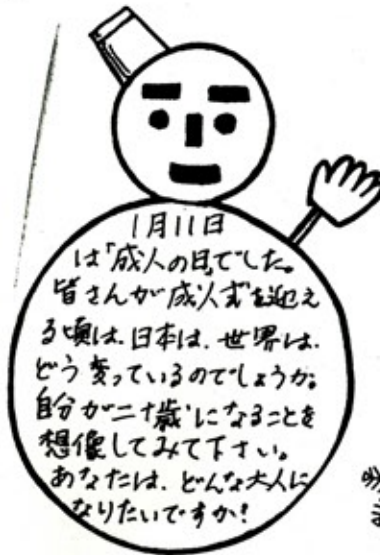 1月11日
は「成人の日」でした。
皆さんが成人式を迎え
る頃は、日本は、世界は、
どう変っているのでしょうか。
自分が二十歳になることを
想像してみて下さい。
あなたは、どんな大人に
なりたいですか！